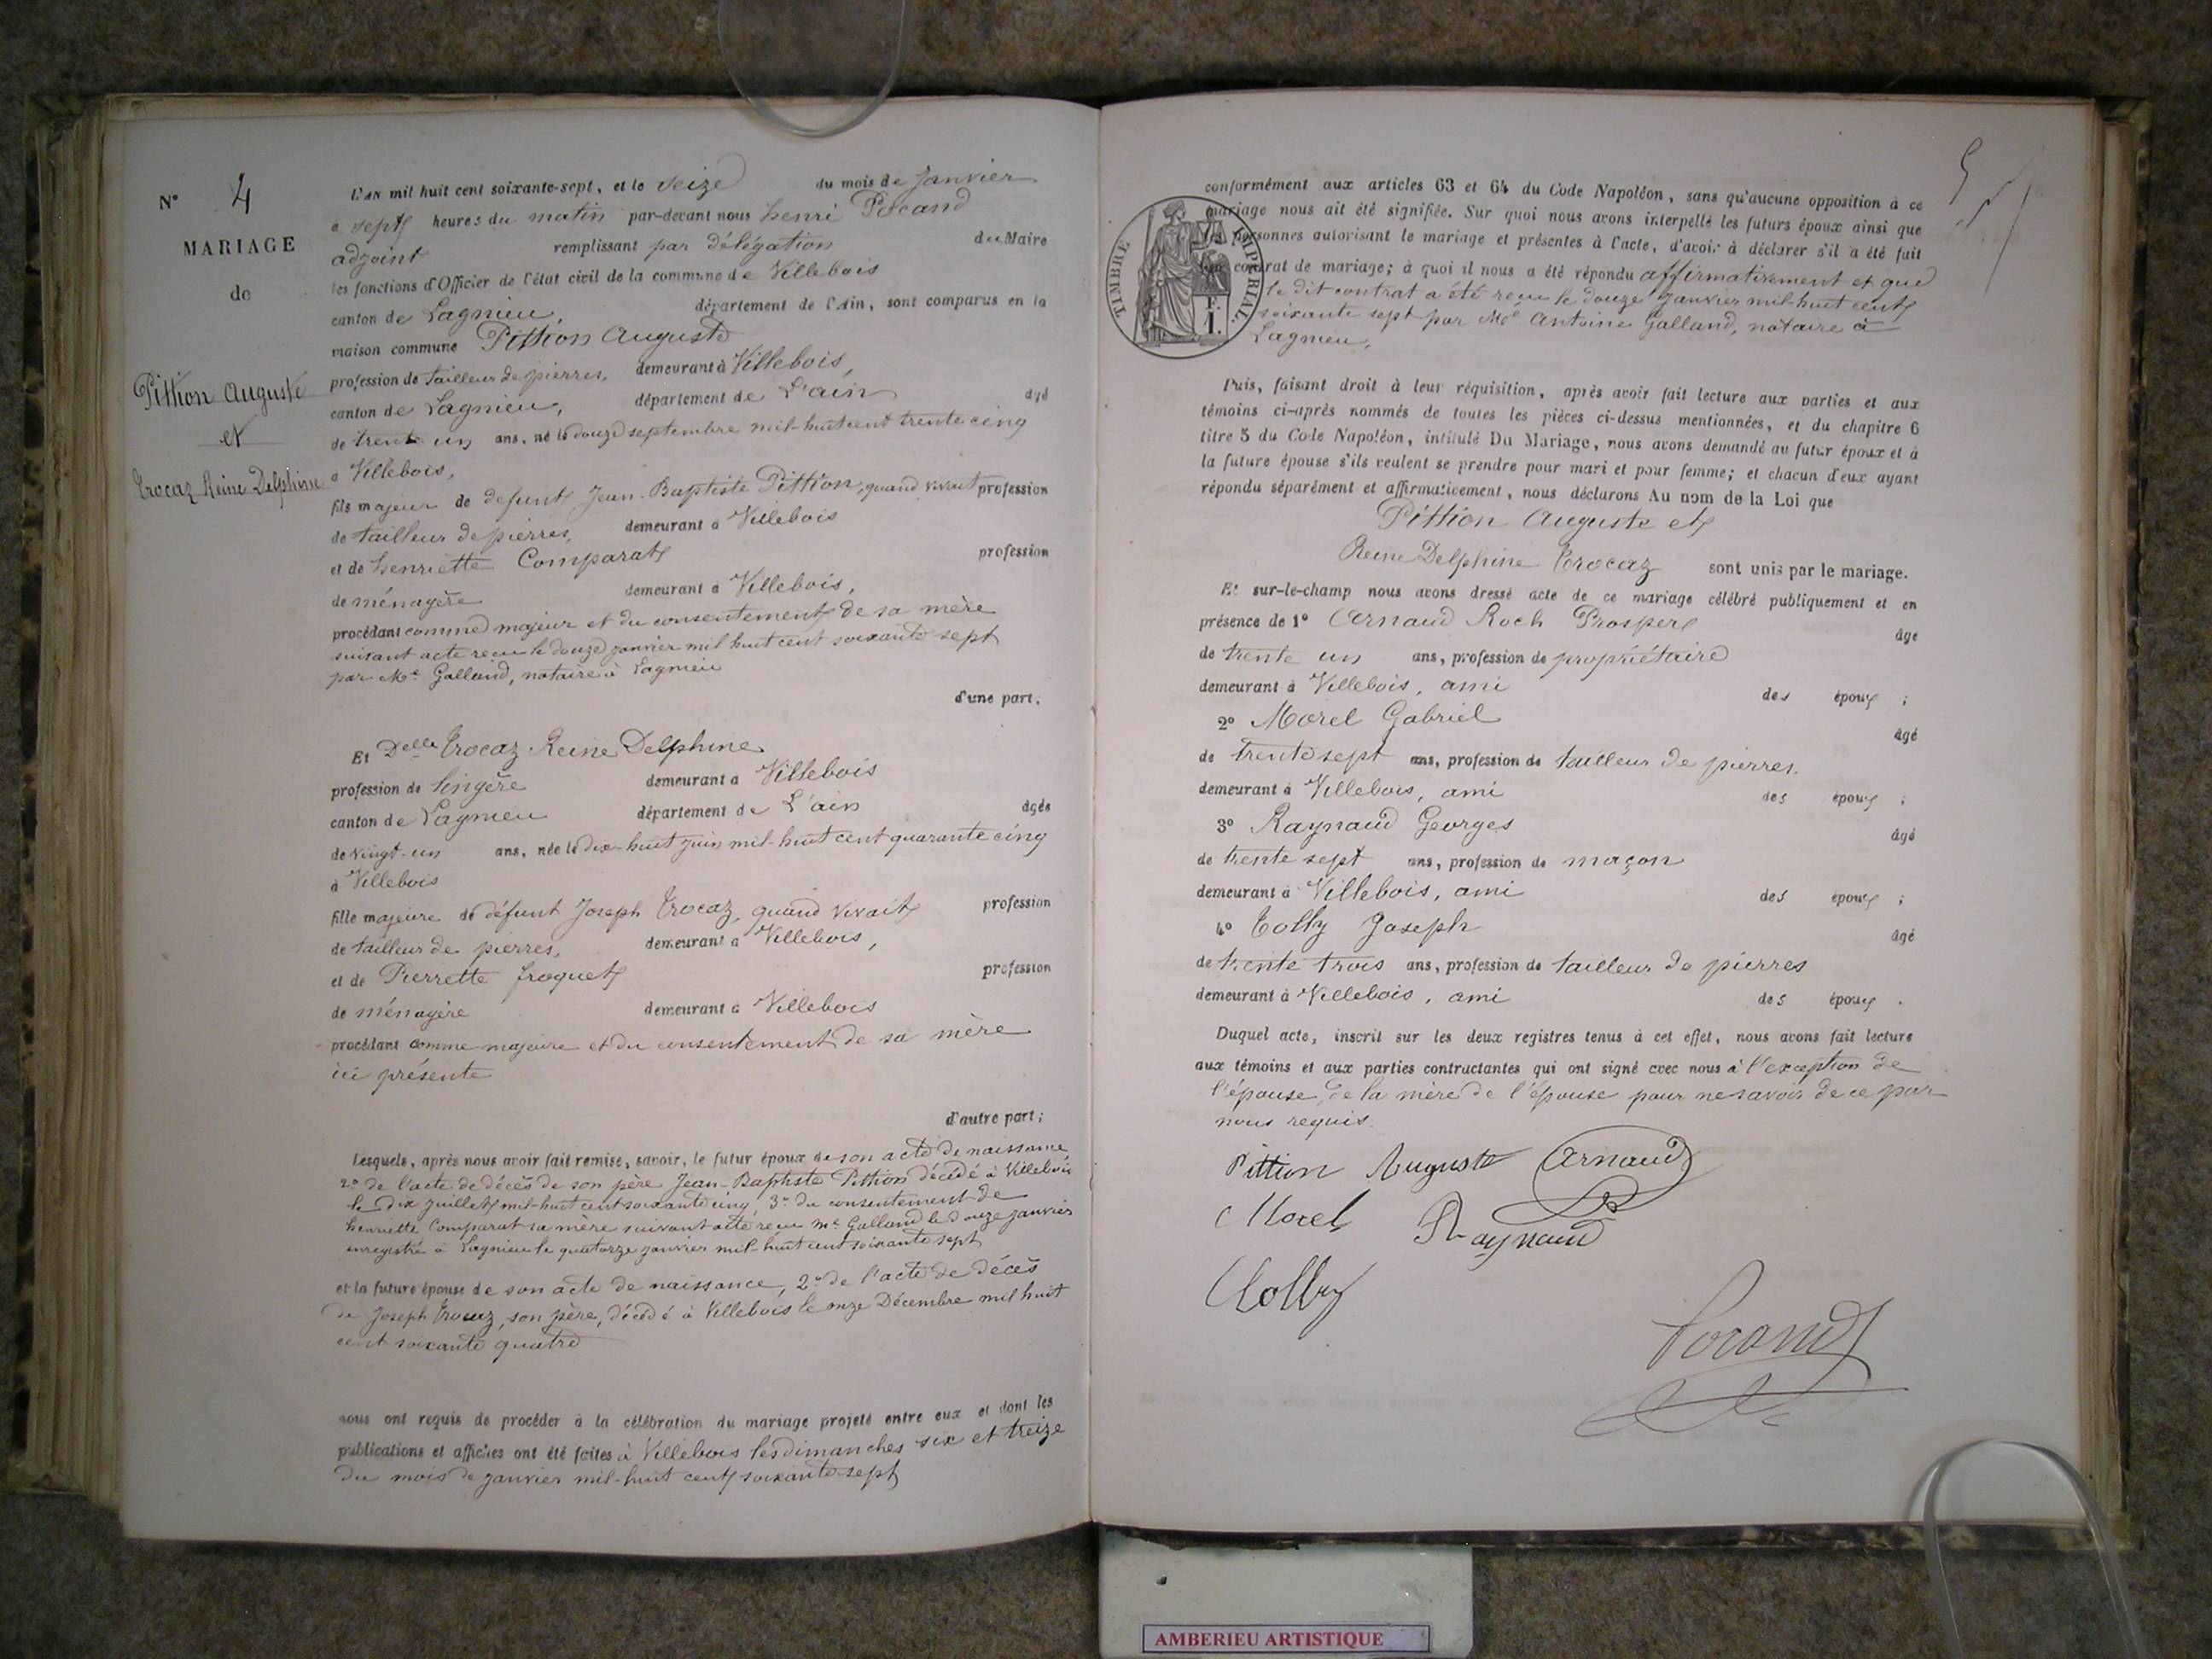 N° 4
MARIAGE
de
Pittion Auguste
et
Trocaz Reine Delphine
L'AN mil huit cent soixante-sept, et le seize du mois de Janvier
à sept heures du matin par-devant nous henri Pocand
adjoint remplissant par délégation du Maire
les fonctions d'Officier de l'état civil de la commune de Villebois
canton de Lagnieu, département de l'Ain, sont comparus en la
maison commune Pittion Auguste
profession de tailleur de pierres, demeurant à Villebois,
canton de Lagnieu, département de L'ain âgé
de trente un ans, né le douze septembre mil-huit cent trente cinq
à Villebois,
fils majeur de défunt Jean-Baptiste Pittion, quand vivait profession
de tailleur de pierres, demeurant à Villebois
et de henriette Comparat profession
de ménagère demeurant à Villebois,
procédant comme majeur et du consentement de sa mère
suivant acte reçu le douze janvier mil huit cent soixante sept
par Me Galland, notaire à Lagnieu
d'une part,
Et Delle Trocaz Reine Delphine
profession de lingère demeurant à Villebois
canton de Lagnieu département de L'ain âgée
de vingt-un ans, née le dix-huit juin mil-huit cent quarante cinq
à Villebois
fille majeure de défunt Joseph Trocaz, quand vivait profession
de tailleur de pierres, demeurant à Villebois,
et de Pierrette froquet profession
de ménagère demeurant à Villebois
procédant comme majeure et du consentement de sa mère
ici présente
d'autre part;
Lesquels, après nous avoir fait remise, savoir, le futur époux de son acte de naissance,
2° de l'acte de décès de son père Jean-Baptiste Pittion décédé à Villebois
le dix juillet mil-huit cent soixante cinq, 3° du consentement de
henriette Comparat sa mère suivant acte reçu Me Galland le douze janvier
enregistré à Lagnieu le quatorze janvier mil-huit cent soixante sept
et la future épouse de son acte de naissance, 2° de l'acte de décès
de Joseph Trocaz, son père, décédé à Villebois le onze Décembre mil huit
cent soixante quatre
nous ont requis de procéder à la célébration du mariage projeté entre eux et dont les
publications et affiches ont été faites à Villebois les dimanches six et treize
du mois de janvier mil-huit cent soixante sept
5
TIMBRE IMPERIAL
F.
1.
conformément aux articles 63 et 64 du Code Napoléon, sans qu'aucune opposition à ce
mariage nous ait été signifiée. Sur quoi nous avons interpellé les futurs époux ainsi que
les personnes autorisant le mariage et présentes à l'acte, d'avoir à déclarer s'il a été fait
un contrat de mariage; à quoi il nous a été répondu affirmativement et que
le dit contrat a été reçu le douze janvier mil-huit cent
soixante sept par Me Antoine Galland, notaire à
Lagnieu,
Puis, faisant droit à leur réquisition, après avoir fait lecture aux parties et aux
témoins ci-après nommés de toutes les pièces ci-dessus mentionnées, et du chapitre 6
titre 5 du Code Napoléon, intitulé Du Mariage, nous avons demandé au futur époux et à
la future épouse s'ils veulent se prendre pour mari et pour femme; et chacun d'eux ayant
répondu séparément et affirmativement, nous déclarons Au nom de la Loi que
Pittion Auguste et
Reine Delphine Trocaz sont unis par le mariage.
Et sur-le-champ nous avons dressé acte de ce mariage célébré publiquement et en
présence de 1° Arnaud Roch Prosper âge
de trente un ans, profession de propriétaire
demeurant à Villebois, ami des époux ;
2° Morel Gabriel âgé
de trente sept ans, profession de tailleur de pierres.
demeurant à Villebois, ami des époux ;
3° Raynaud Georges âgé
de trente sept ans, profession de maçon
demeurant à Villebois, ami des époux ;
4° Colly Joseph âgé
de trente trois ans, profession de tailleur de pierres
demeurant à Villebois, ami des époux .
Duquel acte, inscrit sur les deux registres tenus à cet effet, nous avons fait lecture
aux témoins et aux parties contractantes qui ont signé avec nous à l'exception de
l'épouse, de la mère de l'épouse pour ne savoir de ce par
nous requis.
Pittion Auguste Arnaud
Morel Raynaud
Colly
Pocand
AMBERIEU ARTISTIQUE